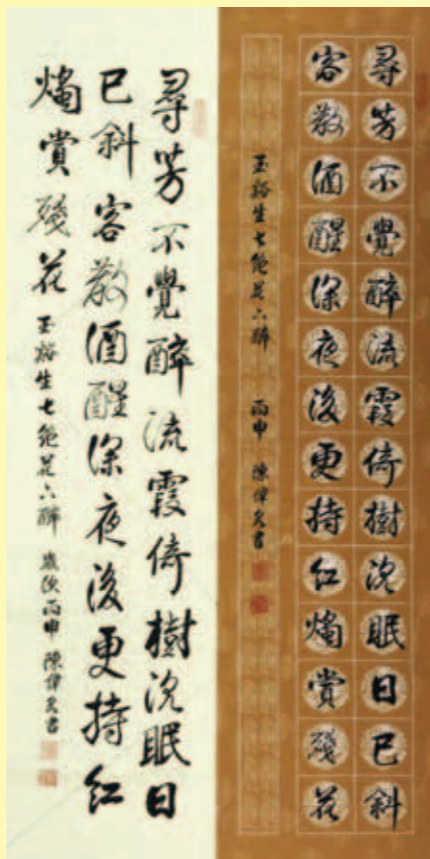 尋芳不覺醉流霞倚樹沈眠日已斜
客散酒醒深夜後更持紅燭賞殘花
玉谿生七絕花下醉 丙申 陳偉書
尋芳不覺醉流霞倚樹沈眠日
已斜客散酒醒深夜後更持紅
燭賞殘花 玉谿生七絕花下醉 歲次丙申 陳偉書